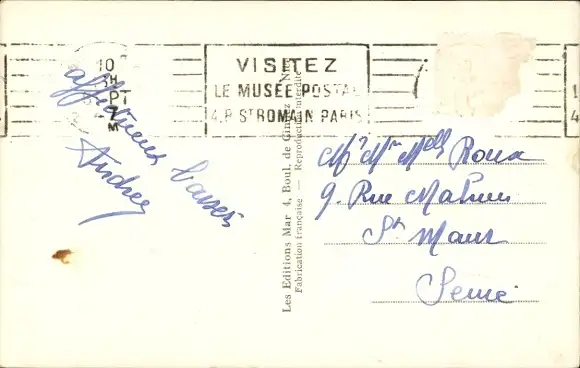 10
H
PT
M
VISITEZ
LE MUSÉE POSTAL
4.R. ST ROMAIN PARIS
affectueux baisers
Andrée
Les Editions Mar 4, Boul. de Nice
Fabrication française — Reproduction interdite
Mr Mme Melle Roux
9. Rue
St Maur
Seine